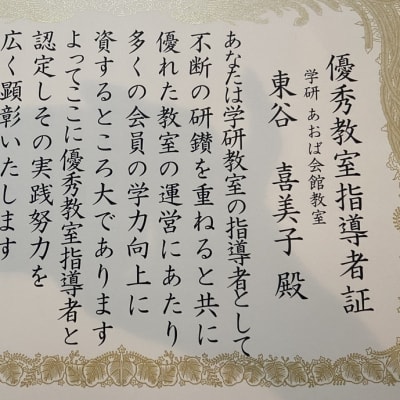 優秀教室指導者証
学研 あおば会館教室
東谷 喜美子 殿
あなたは学研教室の指導者として
不断の研鑽を重ねると共に
優れた教室の運営にあたり
多くの会員の学力向上に
資するところ大であります
よってここに優秀教室指導者と
認定しその実践努力を
広く顕彰いたします